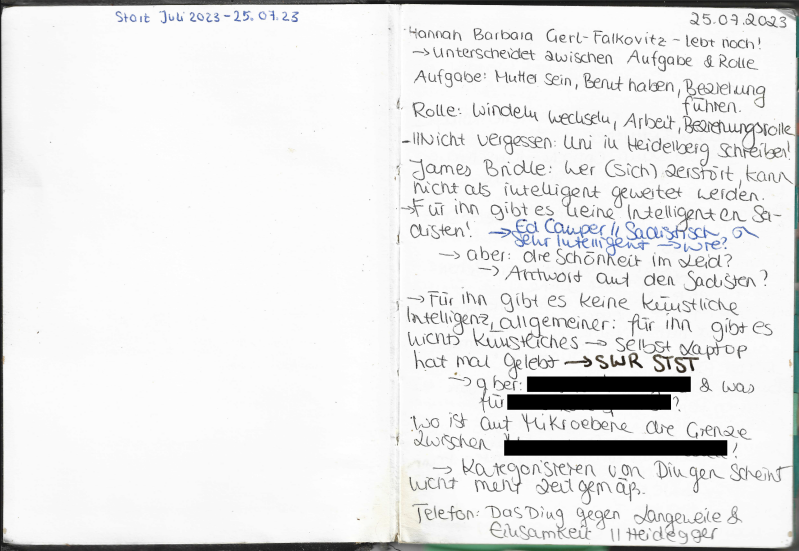 Start Juli 2023 - 25.07.23
25.07.2023
Hannah Barbara Gerl-Falkovitz - lebt noch!
→ Unterscheidet zwischen Aufgabe & Rolle
Aufgabe: Mutter sein, Beruf haben, Beziehung
führen.
Rolle: Windeln wechseln, Arbeit, Beziehungsrolle
-!! Nicht vergessen: Uni in Heidelberg schreiben!
James Bridle: Wer (sich) zerstört, kann
nicht als intelligent gewertet werden.
→ Für ihn gibt es keine Intelligenten Sa-
disten! → Ed Camper || Sadistisch,
sehr Intelligent → wie?
→ aber: die Schönheit im Leid?
→ Antwort auf den Sadisten?
→ Für ihn gibt es keine künstliche
Intelligenz, allgemeiner: für ihn gibt es
nichts Künstliches → selbst Laptop
hat mal gelebt → SWR STST
→ aber: & was
für ?
Wo ist auf Mikroebene die Grenze
zwischen !
→ Kategorisieren von Dingen scheint
nicht mehr zeitgemäß.
Telefon: Das Ding gegen Langeweile &
Einsamkeit || Heidegger